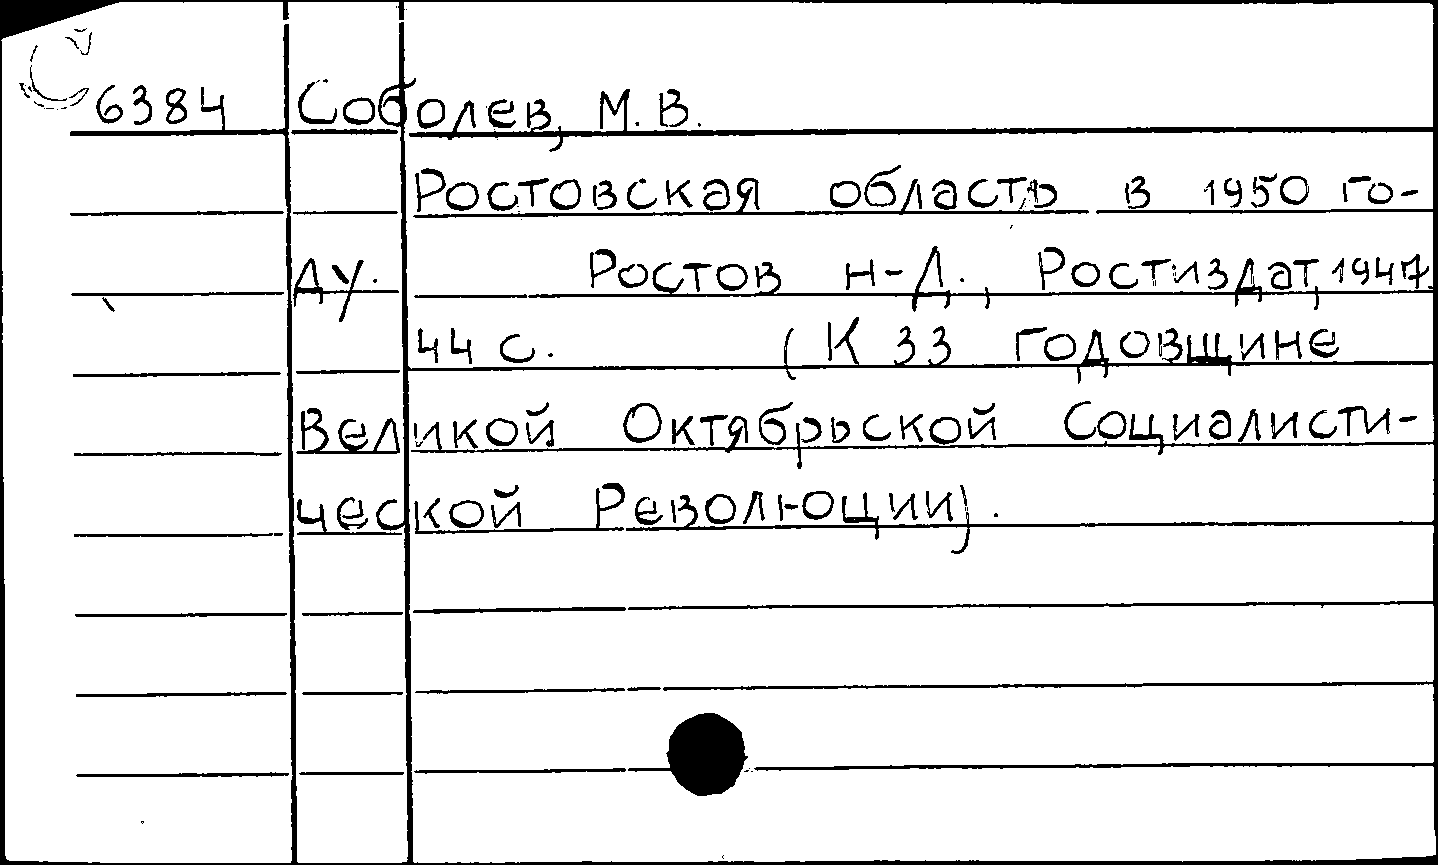 6384 Соболев, М. В.
Ростовская область в 1950 го-
ду. Ростов н-Д., Ростиздат, 1947.
44 с. (К 33 годовщине
Великой Октябрьской Социалисти-
ческой Революции).